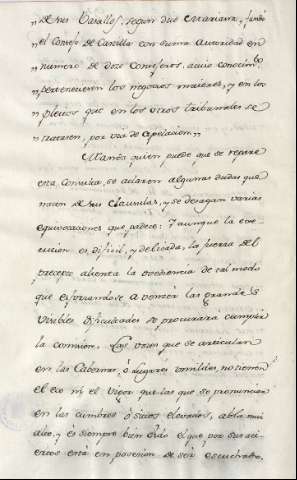 „ de sus Vasallos, segun dice Mariana, fundó
„ el Consejo de Castilla con suma Autoridad en
„ numero de doce Consejeros, a cuio conocim.to
„ pertenecieren los negocios maiores, y en los
„ pleitos que en los otros tribunales se
„ tratasen, por via de apelacion. „
Mas quien puede que se repare
esta Consulta, se aclaren algunas dudas que
nacen de sus Clausulas, y se desagan varias
equivocaciones que padece: Y aunque la exe-
cucion es dificil, y delicada, la fuerza del
precepto alienta la obediencia de tal modo
que esforzandose a vencer las grandes
visibles dificultades se procurará cumplir
la comision. Las voces que se articulan
en las Cabernas, ó lugares omildes, no tienen
el eco ni el vigor que las que se pronuncian
en las cumbres ó sitios elevados, abla mui
alto, y es siempre bien oido el que por sus aci-
ertos está en posesion de ser escuchado.